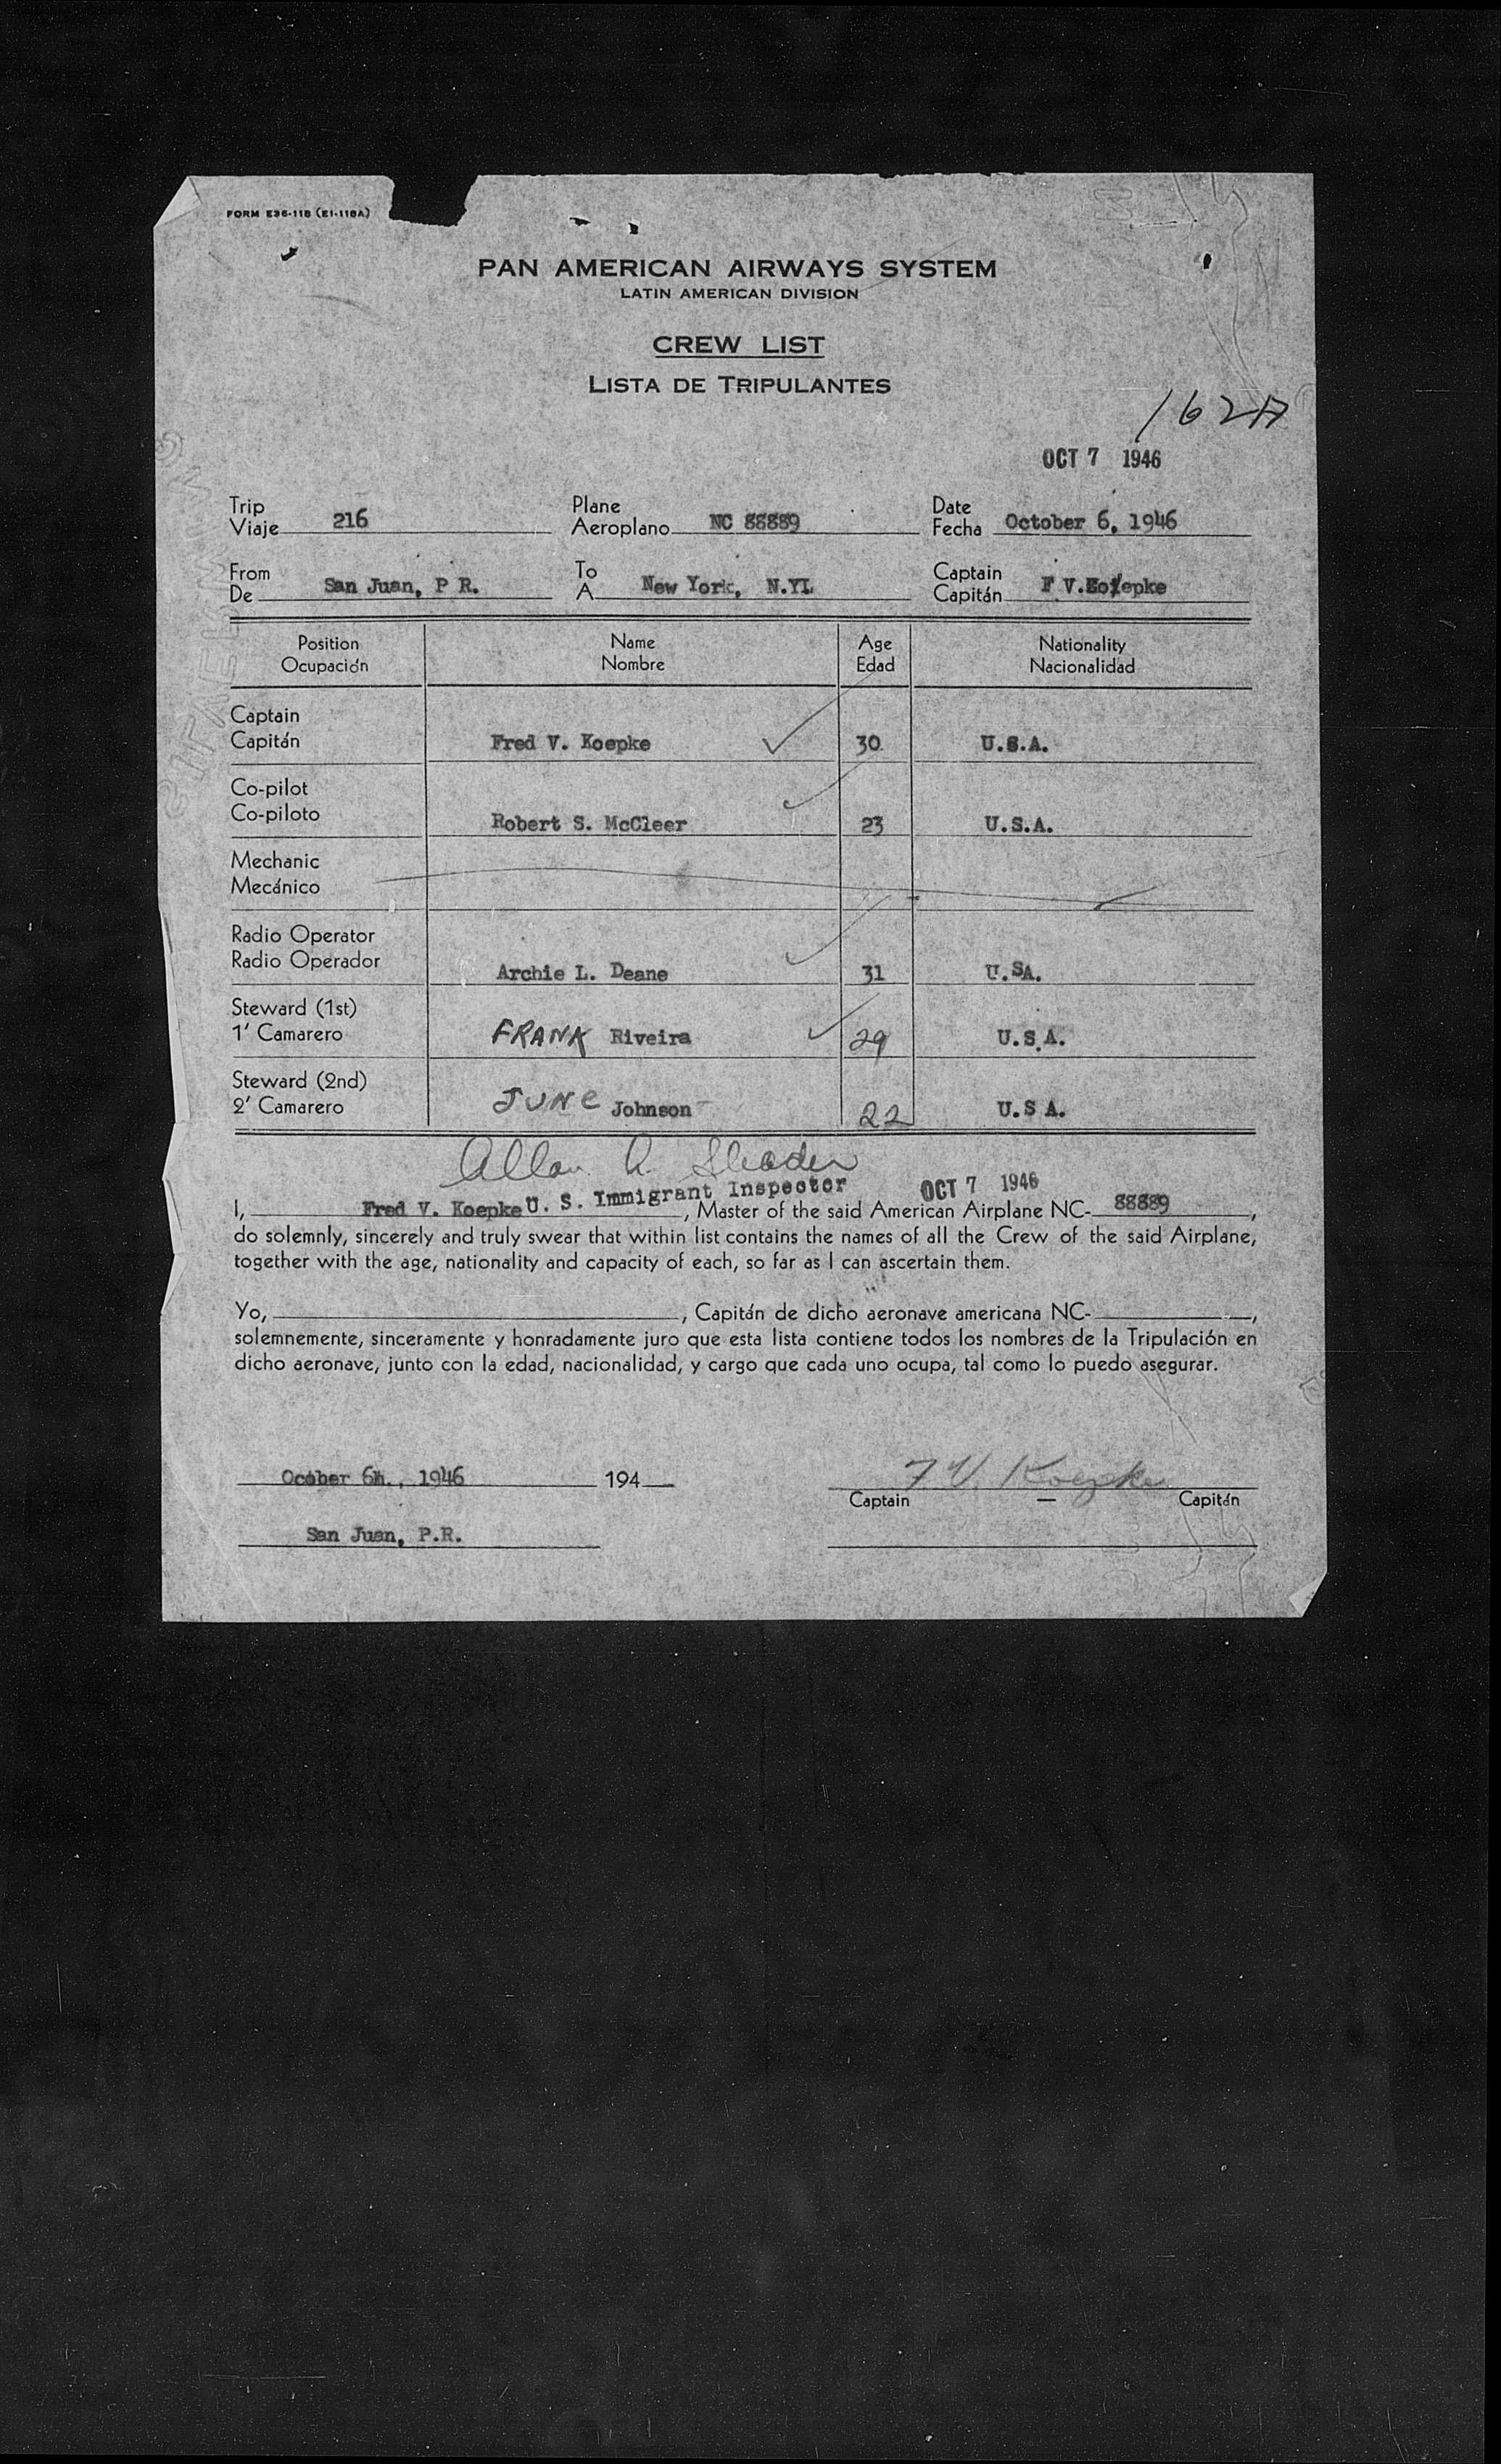 FORM E36-118 (E1-118A)
PAN AMERICAN AIRWAYS SYSTEM
LATIN AMERICAN DIVISION
CREW LIST
LISTA DE TRIPULANTES
162A
OCT 7 1946
Trip
Viaje 216
Plane
Aeroplano NC 88889
Date
Fecha October 6, 1946
From
De San Juan, P R.
To
A New York, N.Y.
Captain
Capitán F V. Koepke
Position Name Age Nationality
Ocupación Nombre Edad Nacionalidad
Captain
Capitán Fred V. Koepke 30 U.S.A.
Co-pilot
Co-piloto Robert S. McCleer 23 U.S.A.
Mechanic
Mecánico
Radio Operator
Radio Operador Archie L. Deane 31 U.SA.
Steward (1st)
1' Camarero FRANK Riveira 29 U.S.A.
Steward (2nd)
2' Camarero JUNE Johnson 22 U.S A.
Allan
U. S. Immigrant Inspector OCT 7 1946
I, Fred V. Koepke, Master of the said American Airplane NC- 88889,
do solemnly, sincerely and truly swear that within list contains the names of all the Crew of the said Airplane,
together with the age, nationality and capacity of each, so far as I can ascertain them.
Yo, , Capitán de dicho aeronave americana NC- ,
solemnemente, sinceramente y honradamente juro que esta lista contiene todos los nombres de la Tripulación en
dicho aeronave, junto con la edad, nacionalidad, y cargo que cada uno ocupa, tal como lo puedo asegurar.
Ocober 6th., 1946 194
F. V. Koepke
Captain — Capitán
San Juan, P.R.